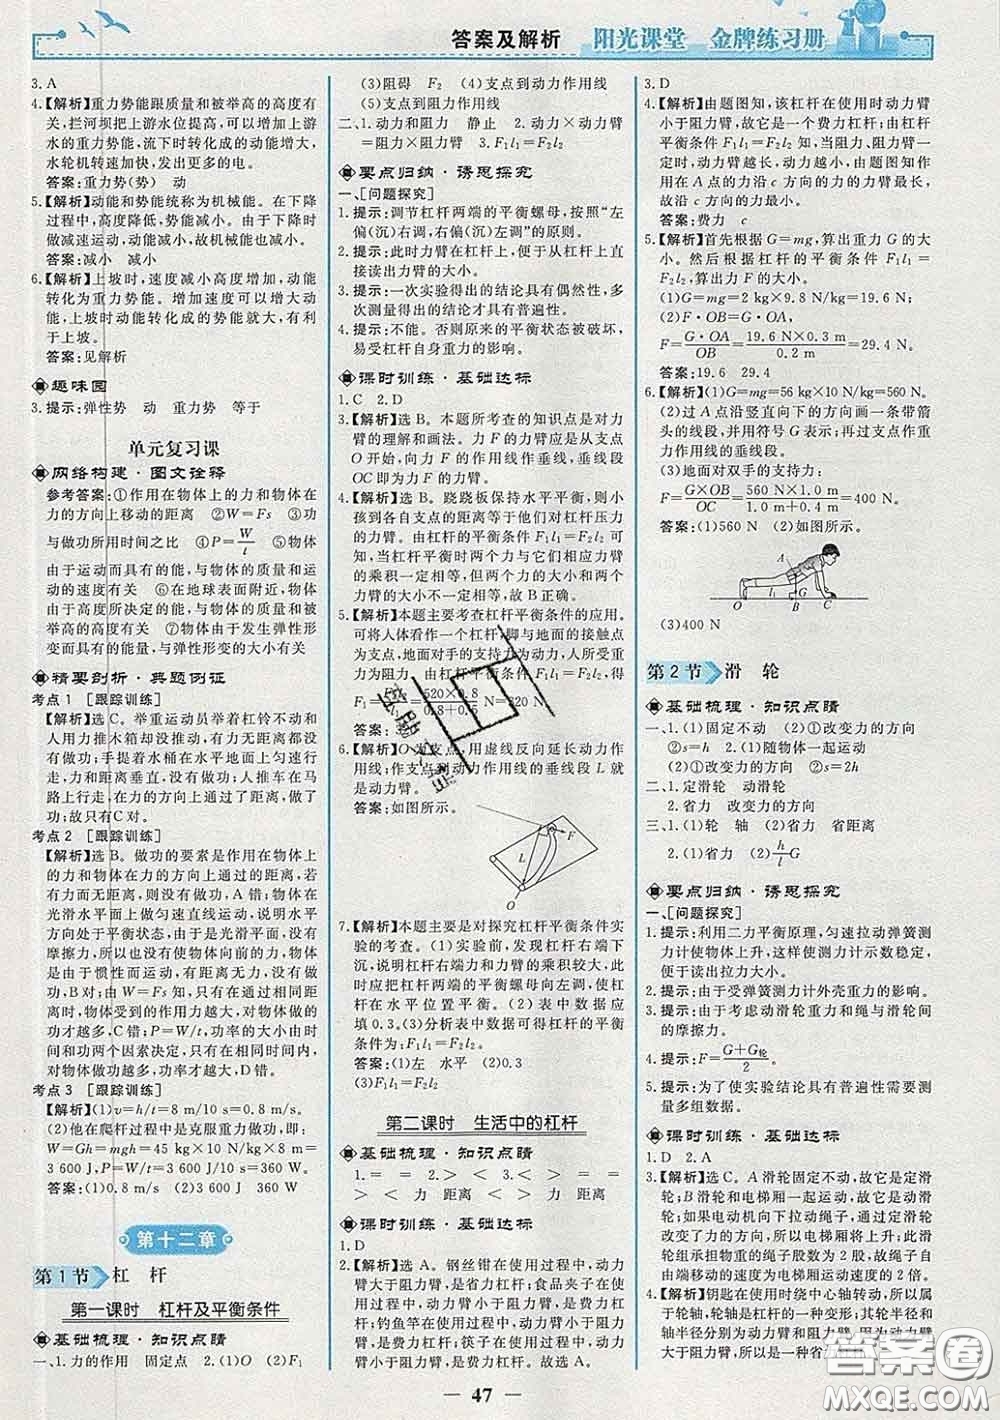 答案及解析 阳光课堂 金牌练习册
3. A
4.【解析】重力势能跟质量和被举高的高度有
关,拦河坝把上游水位提高,可以增大上游
水的重力势能,流下时转化成的动能增大,
水轮机转速加快,发出更多的电。
答案:重力势(势) 动
5.【解析】动能和势能统称为机械能。在下降
过程中,高度降低,势能减小。由于下降时
做减速运动,动能减小,故机械能也减小。
答案:减小 减小
6.【解析】上坡时,速度减小高度增加,动能
转化为重力势能。增加速度可以增大动
能,上坡时动能转化成的势能就大,有利
于上坡。
答案:见解析
趣味园
3. 提示:弹性势 动 重力势 等于
单元复习课
网络构建·图文诠释
参考答案:①作用在物体上的力和物体在
力的方向上移动的距离 ②W=Fs ③功
与做功所用时间之比 ④P=W/t ⑤物体
由于运动而具有的能,与物体的质量与运
动速度有关 ⑥在地球表面附近,物体由
于高度所决定的能,与物体的质量与
被举高的高度有关 ⑦物体由于发生弹性形
变而具有的能,与弹性形变的大小有关
精要剖析·典题例证
考点1 [跟踪训练]
【解析】选C。举重运动员举着杠铃不动和
人用力推木箱却没推动,都有力无距离,不
做功;手提着水桶在水平地面上匀速行
走,力和距离垂直,没有做功;人推车在马
路上行走,在力的方向上通过了距离,做了
功;故只有C对。
考点2 [跟踪训练]
【解析】选B。做功的要素是作用在物体上
的力和物体在力的方向上移动的距离,若
有力而无距离,则没有做功,A错;物体在
光滑水平面上做匀速直线运动,水平
方向处于平衡状态,由于是光滑平面,没有
摩擦力,所以水平方向没有受到力,物体
是由于惯性而运动,有距离而没有力,没有
做功,B对;由W=Fs知,没有距离的情况
时,物体受到的作用力大,对物体做的
功才越多,C错;P=W/t,功率的大小由功
和功两个因素决定,功率大的机械在
做功时间相同时,做功才越多,D错。
考点3 [跟踪训练]
【解析】(1)v=h/t=8 m/10 s=0.8 m/s。
(2)他在爬杆过程中是克服重力做功,
W=Gh=mgh=45 kg×10 N/kg×8 m=
3 600 J,P=W/t=3 600 J/10 s=360 W。
答案:(1)0.8 m/s (2)3 600 J 360 W
第十二章
第1节 杠 杆
第一课时 杠杆及平衡条件
基础梳理·知识点睛
一、1.力的作用 固定点 2.(1)O (2)F1
(3)阻碍 F2 (4)支点到动力作用线
(5)支点到阻力作用线
二、1.动力和阻力 静止 2.动力×动力臂
=阻力×阻力臂 3.F1l1=F2l2
要点归纳·诱思探究
一、[问题探究]
1. 提示:调节杠杆两端的平衡螺母,按照“左
偏(沉)右调,右偏(沉)左调”的原则。
2. 提示:此时力臂在杠杆上,便于从杠杆上直
接读出力臂的大小。
3. 提示:一次实验得出的结论具有偶然性,多
次测量得出的结论才具有普遍性。
4. 提示:不能。否则原来的平衡状态被破坏,
易受杠杆自身重力的影响。
课时训练·基础达标
1. C 2. D
3.【解析】选B。本题所考查的知识点是对力
臂的理解和画法。力F的力臂应是从支点
O开始,向F的作用线作垂线,垂线段
OC即为力F的力臂。
4.【解析】选B。跷跷板保持水平平衡,则小
孩到各自支点的距离等于他们对杠杆压力
的力臂。由杠杆平衡条件可知,由于力臂不
同,力也不同。当杠杆平衡时两个力与它们相应力臂
的乘积一定相等,但力的大小和两个力
臂的大小不一定相等,故B正确。
5.【解析】本题主要考查杠杆平衡条件的应用。
可将人体看作一个杠杆,脚与地面的接触点
为支点,地面对手的支持力为动力,人所受重力
为阻力,由杠杆平衡条件F1l1=F2l2得
6.【解析】O为支点,用虚线反向延长动力作
用线;作支点到动力作用线的垂线段L就
是动力臂。
答案:如图所示。
L F O
7.【解析】本题主要是对探究杠杆平衡条件实
验的考查。(1)实验前,发现杠杆右端下
沉,说明杠杆右端力和力臂的乘积较大,因
此应把杠杆的平衡螺母向左调,使杠
杆在水平位置平衡。(2)表中数据应
填0.3。(3)分析表中数据可得杠杆的平衡
条件为:F1l1=F2l2。
答案:(1)左 水平 (2)0.3
(3)F1l1=F2l2
第二课时 生活中的杠杆
基础梳理·知识点睛
1.= = 2.> < 3.< > = =
> < 力 距离 < > 距离 力
课时训练·基础达标
1. D
2.【解析】选A。钢丝钳在使用过程中,动力
臂大于阻力臂,是省力杠杆;食品夹子在使
用过程中,动力臂小于阻力臂,是费力杠
杆;钓鱼竿在使用过程中,动力臂小于阻力
臂,是费力杠杆;筷子在使用过程中,动力臂
小于阻力臂,是费力杠杆。故选A。
3. D
4.【解析】由题图知,该杠杆在使用时动力臂
小于阻力臂,故它是一个费力杠杆;由杠杆
平衡条件F1l1=F2l2知,当阻力、阻力臂一
定时,动力臂越大,动力越小,由题图知
作用在A点的力沿c方向的力的力臂最长,
故沿c方向的力最小。
答案:费力 c
5.【解析】首先根据G=mg,算出重力G的大
小。然后根据杠杆的平衡条件F1l1=
F2l2,算出力F的大小。
(1)G=mg=2 kg×9.8 N/kg=19.6 N。
(2)F·OB=G·OA,
F=G·OA/OB=19.6 N×0.3 m/0.2 m=29.4 N。
答案:19.6 29.4
6.【解析】(1)G=mg=56 kg×10 N/kg=560 N。
(2)过A点沿竖直向下的方向画一条带箭
头的线段,并用符号G表示;再过支点作重
力作用线的垂线段。
(3)地面对双手的支持力:
F=G×OB/OC=560 N×1.0 m/1.0 m+0.4 m=400 N。
答案:(1)560 N (2)如图所示。
A O l1 G B C
(3)400 N
第2节 滑 轮
基础梳理·知识点睛
一、1.(1)固定不动 (2)①改变力的方向
②s=h 2.(1)随物体一起运动
(2)①改变力的方向 ②s=2h
二、1.定滑轮 动滑轮
2.省力 改变力的方向
三、1.(1)轮 轴 (2)省力 省距离
2.(1)省力 (2)h/l G
要点归纳·诱思探究
一、[问题探究]
1. 提示:利用二力平衡原理,匀速拉动弹簧测
力计使物体上升,这样使测力计示数稳定,
便于读出拉力大小。
2. 提示:由于受弹簧测力计外壳重力的影响。
3. 提示:由于考虑动滑轮重力和绳与滑轮间
的摩擦力。
4. 提示:F=G+G轮/2
5. 提示:为了使实验结论具有普遍性需要测
量多组数据。
课时训练·基础达标
1. D 2. A
3.【解析】选C。A滑轮固定不动,故它是定滑
轮;B滑轮和电梯厢一起运动,故是动滑
轮;如果电动机向下拉动绳子,定滑轮
改变了力的方向,电梯厢应上升;由题图知,
滑轮组承担物重的绳子股数为2股,故绳
端移动的速度是电梯厢运动速度的2倍。
4.【解析】钥匙在使用时绕中心轴转动,所以
属于轮轴,轮轴是杠杆的一种变形;其轮半径和
轴半径分别为动力臂和阻力臂,
47
答案圈
MXQE.COM